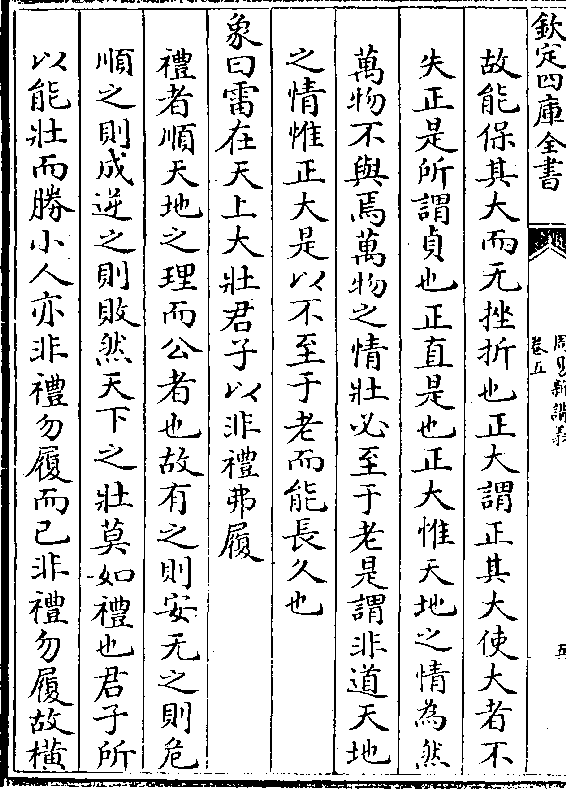 欽定四庫全書
周易新講義
卷五
五
故能保其大而无挫折也正大謂正其大使大者不
失正是所謂貞也正直是也正大惟天地之情為然
萬物不與焉萬物之情壯必至于老是謂非道天地
之情惟正大是以不至于老而能長久也
象曰雷在天上大壯君子以非禮弗履
禮者順天地之理而公者也故有之則安无之則危
順之則成逆之則敗然天下之壯莫如禮也君子所
以能壯而勝小人亦非禮勿履而已非禮勿履故橫